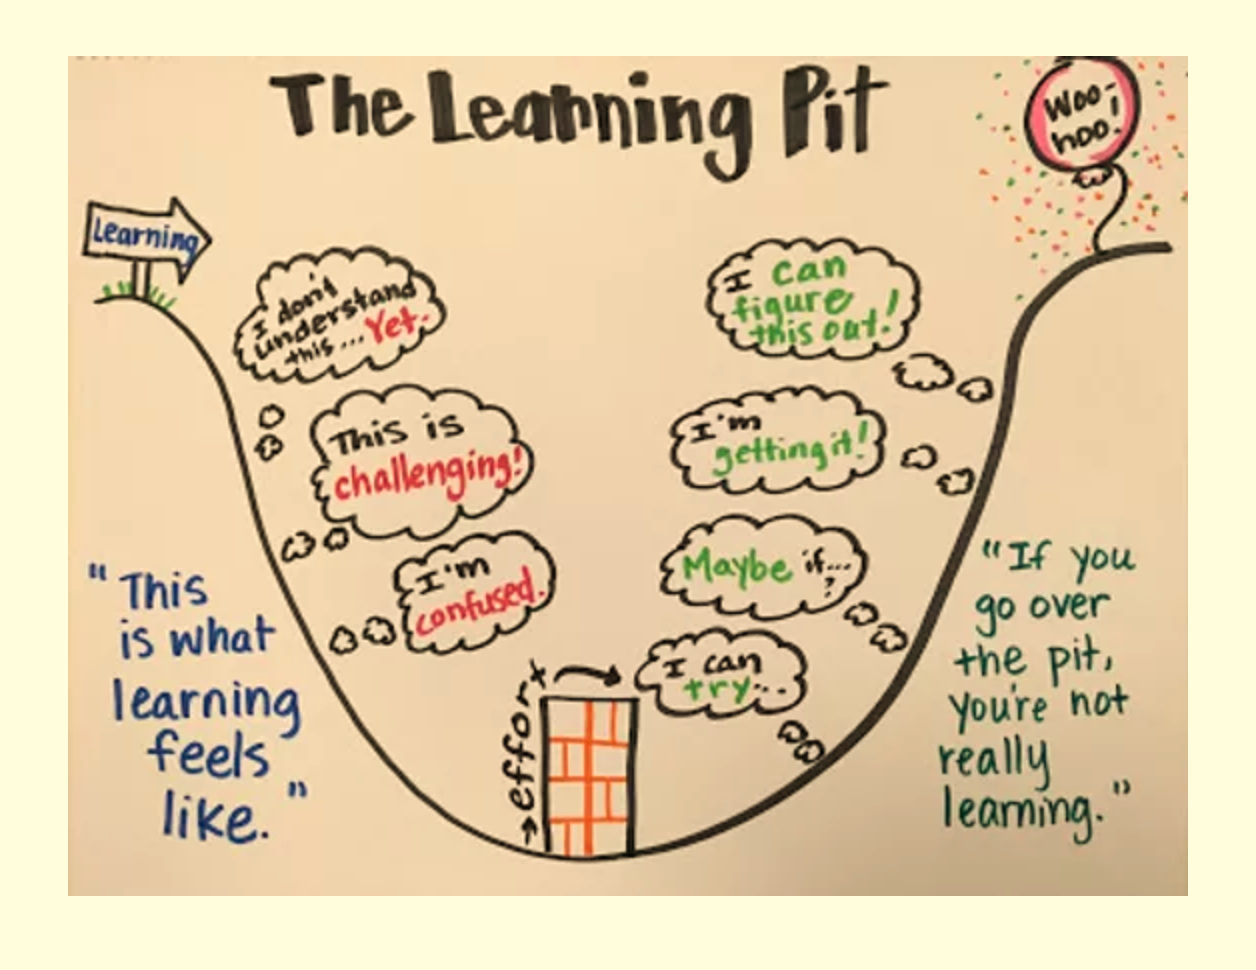 The Learning Pit
Woo-
hoo!
Learning
I don't
understand
this ... Yet.
This is
challenging!
I'm
confused.
effort
I can
try...
Maybe if...
?
I'm
getting it!
I can
figure
this out!
"This
is what
learning
feels
like."
"If you
go over
the pit,
you're not
really
learning."